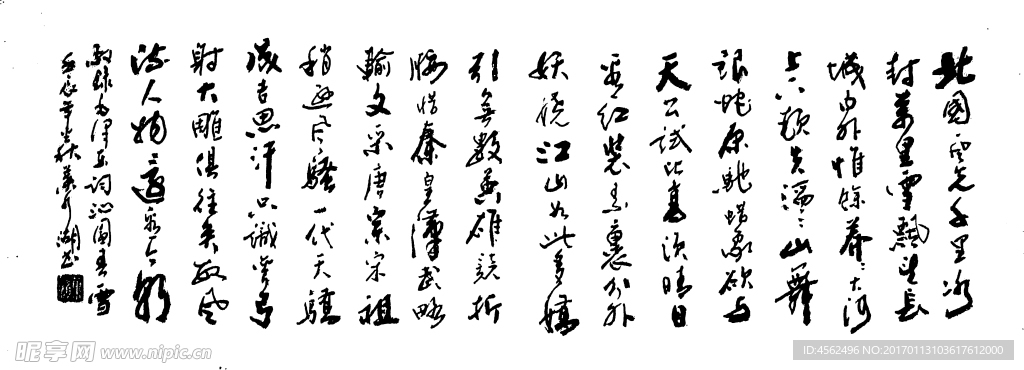 北國风光千里冰
封萬里雪飄望长
城内外惟餘莽〻大河
上下顿失滔〻山舞
银蛇原驰蜡象欲与
天公试比高须晴日
看红裝素裹分外
妖娆江山如此多嬌
引無數英雄競折
腰惜秦皇漢武略
输文采唐宗宋祖
稍逊风骚一代天驕
成吉思汗只識弯弓
射大雕俱往矣数风
流人物还看今朝
敬録毛泽东词沁園春雪
壬辰年
昵享网 www.nipic.cn
ID:4562496 NO:20170113103617612000